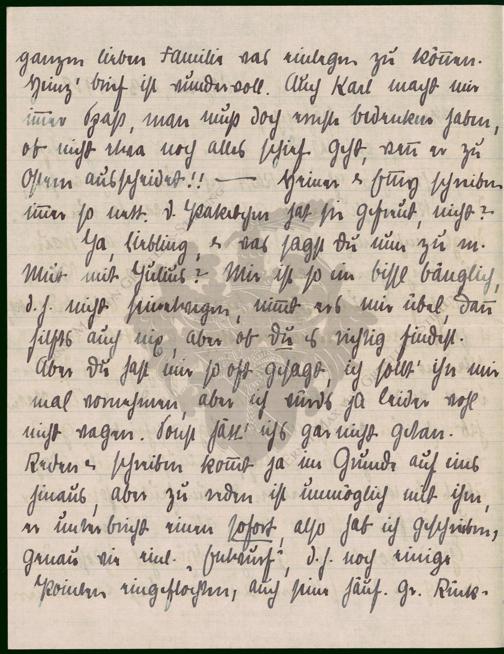 ganzen lieben Familie was einlegen zu können.
Heinz' brief ist wundervoll. Auch Karl macht mir
immer Spaß, man muß doch ernste bedenken haben,
ob nicht etwa noch alles schief geht, wenn er zu
Ostern ausscheidet!! — Heiner & schreiben
immer so nett. d. Paketchen hat sie gefreut, nicht?
Ja, liebling, & was sagst Du nun zu m.
Mut mit Julius? Mir ist so ein bißl bänglich,
d.h. nicht seinetwegen, nimmt ers mir übel, dann
hilfts auch nix, aber ob Du es richtig findest.
Aber Du hast mir so oft gesagt, ich sollt' ihn mir
mal vornehmen, aber ich würds ja leider wohl
nicht wagen. Sonst hätt' ichs gar nicht getan.
Reden & schreiben kommt ja im Grunde auf eins
hinaus, aber zu reden ist unmöglich mit ihm,
er unterbricht einen sofort, also hab ich geschrieben,
genau wie einl. "Entwurf", d.h. noch einige
Pointen eingeflochten, auch seine häuf. gr. Rück-